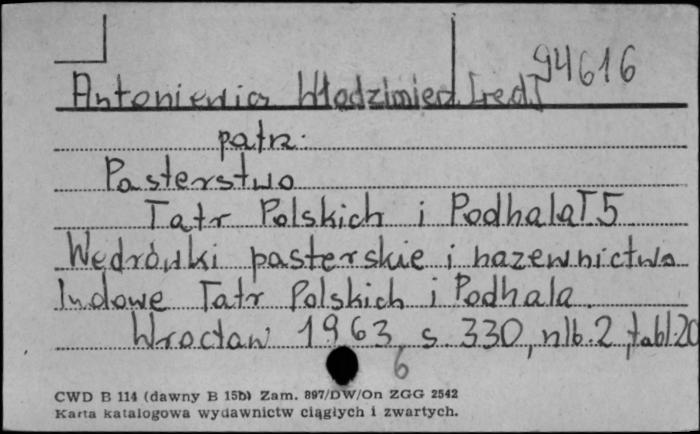 94616
Antoniewicz Włodzimierz [red]
patrz.
Pasterstwo
Tatr Polskich i Podhala T 5
Wędrówki pasterskie i nazewnictwo
ludowe Tatr Polskich i Podhala.
Wrocław 1963, s 330, nlb. 2, tabl 20
6
CWD B 114 (dawny B 15b) Zam. 897/DW/On ZGG 2542
Karta katalogowa wydawnictw ciągłych i zwartych.